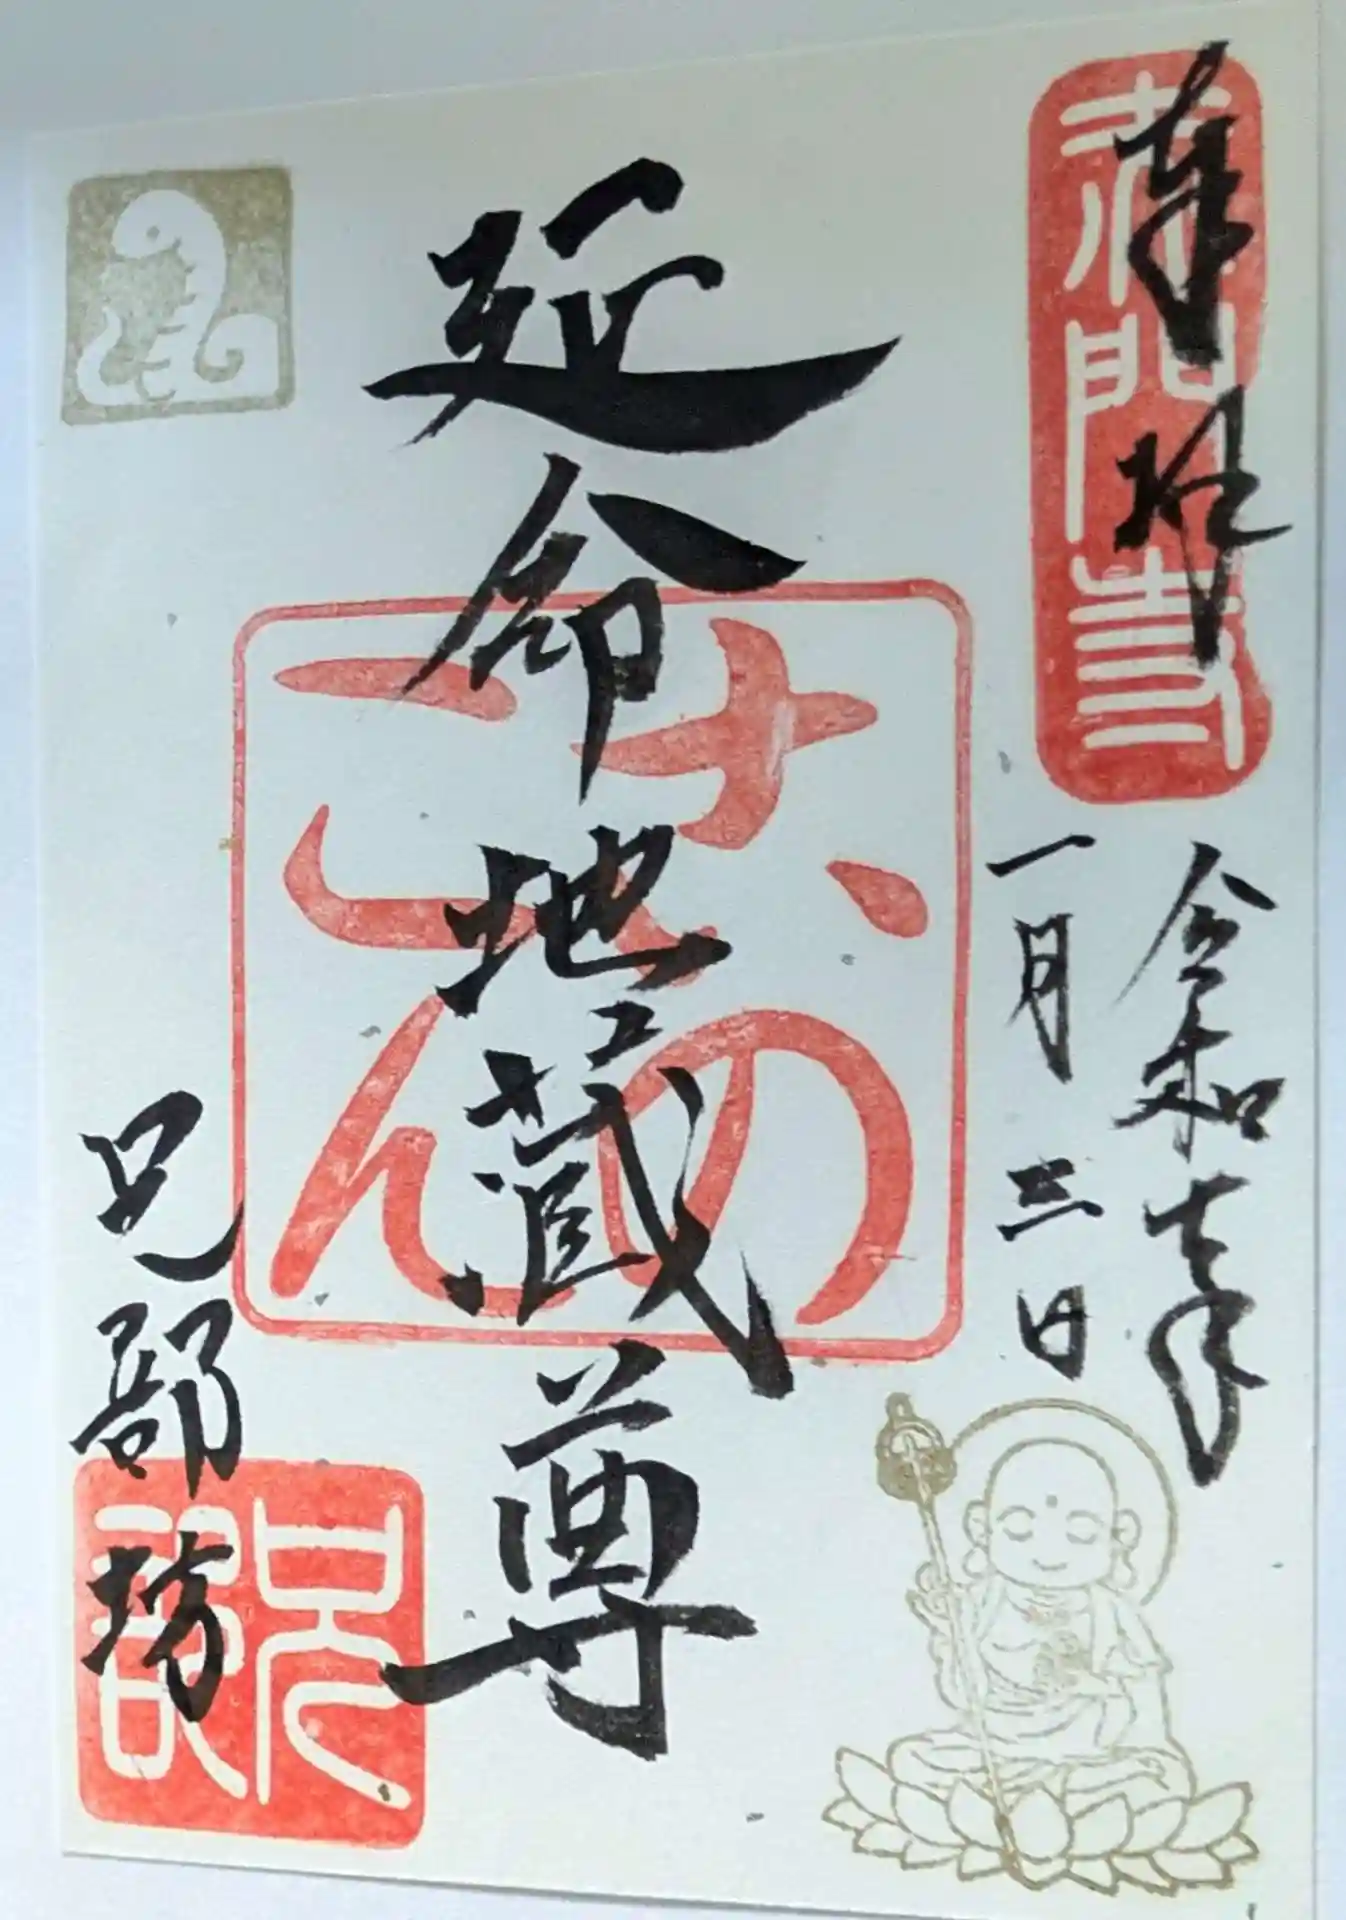 奉拝
赤門寺
令和七年
一月三日
延命地蔵尊
兄部坊
兄部